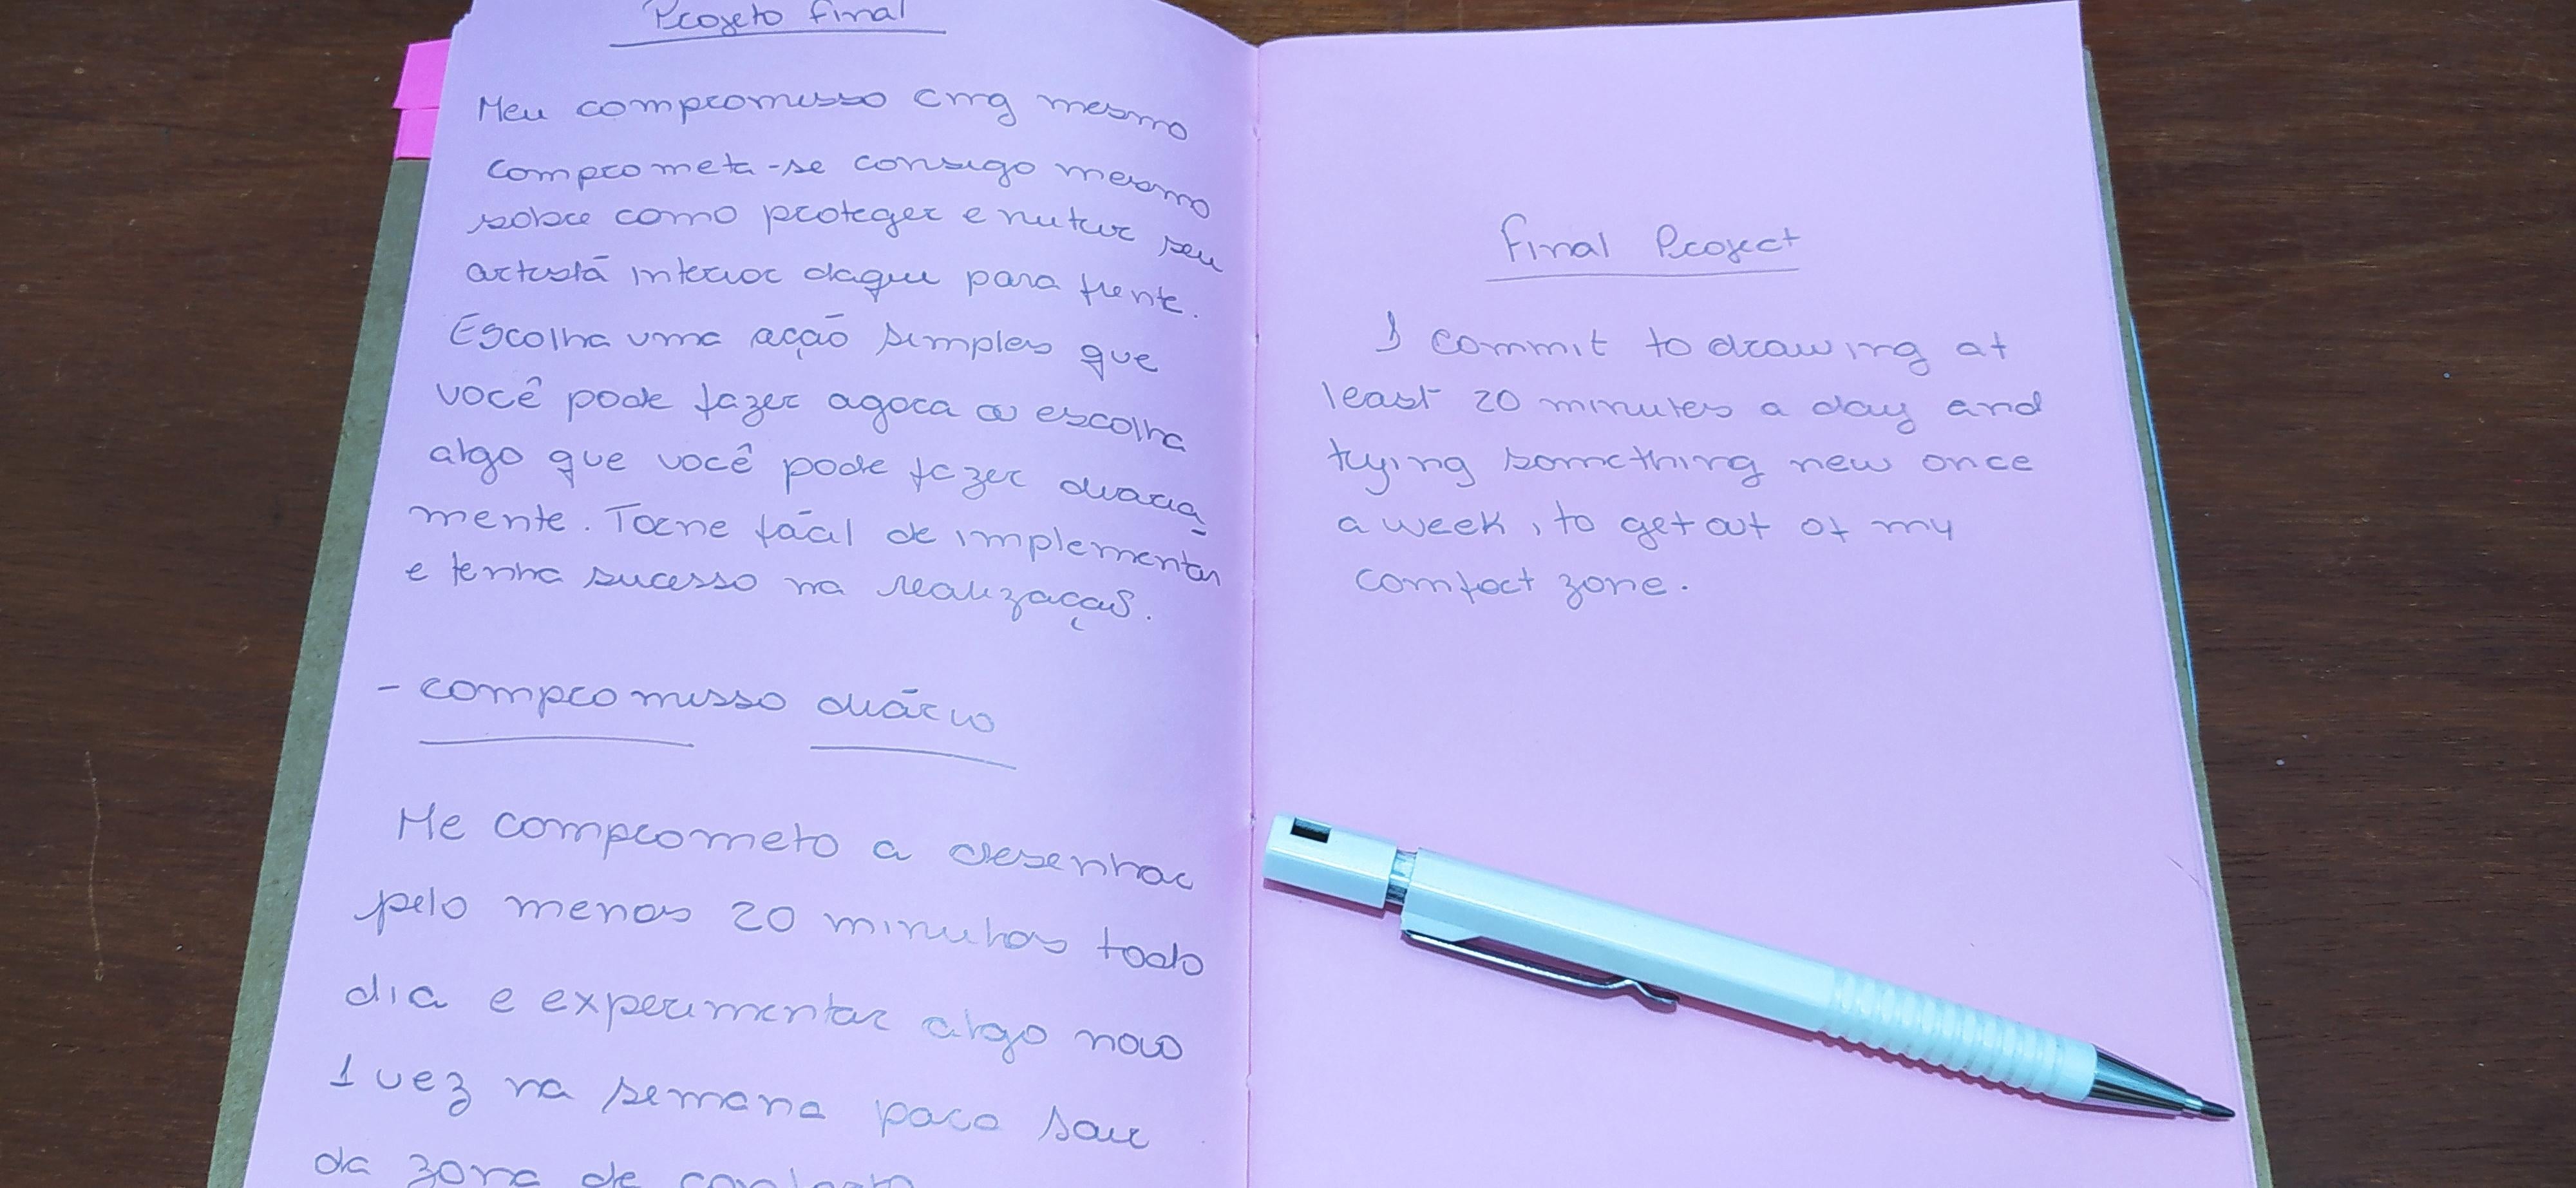 Projeto final
Meu compromisso cmg mesmo
comprometa-se consigo mesmo
sobre como proteger e nutrir seu
artista interior daqui para frente.
Escolha uma ação simples que
você pode fazer agora ou escolha
algo que você pode fazer diaria
mente. Torne fácil de implementar
e tenha sucesso na realização.
- compromisso diário
Me comprometo a desenhar
pelo menos 20 minutos todo
dia e experimentar algo novo
1 vez na semana para sair
da zona de conforto
Final Project
I commit to drawing at
least 20 minutes a day and
trying something new once
a week, to get out of my
comfort zone.